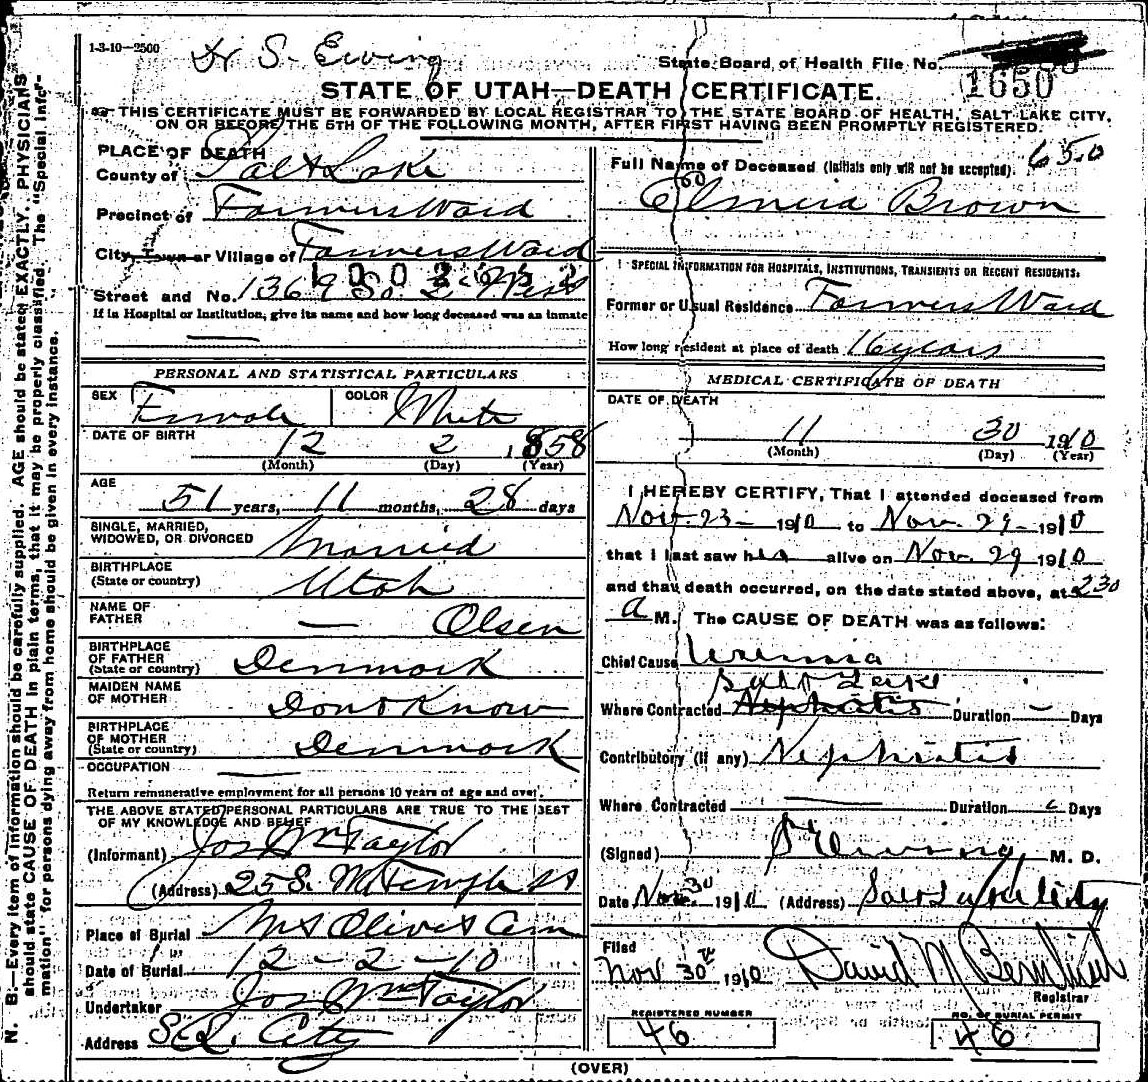 1-3-10-2500
Dr S. Ewing
State Board of Health File No.
1650
STATE OF UTAH—DEATH CERTIFICATE.
THIS CERTIFICATE MUST BE FORWARDED BY LOCAL REGISTRAR TO THE STATE BOARD OF HEALTH, SALT LAKE CITY,
ON OR BEFORE THE 5TH OF THE FOLLOWING MONTH, AFTER FIRST HAVING BEEN PROMPTLY REGISTERED.
N. B.—Every item of information should be carefully supplied. AGE should be stated EXACTLY. PHYSICIANS
should state CAUSE OF DEATH in plain terms, that it may be properly classified. The "Special Info"-
mation" for persons dying away from home should be given in every instance.
PLACE OF DEATH
County of Salt Lake
Precinct of Farmers Ward
City, Town or Village of Farmers Ward
Street and No. 1369 So. 2 West
If in Hospital or Institution, give its name and how long deceased was an inmate
—
PERSONAL AND STATISTICAL PARTICULARS
SEX Female COLOR White
DATE OF BIRTH 12 2 1858
(Month) (Day) (Year)
AGE
51 years, 11 months, 28 days
SINGLE, MARRIED,
WIDOWED, OR DIVORCED Married
BIRTHPLACE
(State or country) Utah
NAME OF
FATHER — Olsen
BIRTHPLACE
OF FATHER
(State or country) Denmark
MAIDEN NAME
OF MOTHER Dont Know
BIRTHPLACE
OF MOTHER
(State or country) Denmark
OCCUPATION —
Return remunerative employment for all persons 10 years of age and over.
THE ABOVE STATED PERSONAL PARTICULARS ARE TRUE TO THE BEST
OF MY KNOWLEDGE AND BELIEF
(Informant) Jos Wm Taylor
(Address) 25 S. W Temple St
Place of Burial Mt Olivet Cem
Date of Burial 12-2-10
Undertaker Jos Wm Taylor
Address S.L. City
Full Name of Deceased (Initials only will not be accepted). 650
Elmira Brown
SPECIAL INFORMATION FOR HOSPITALS, INSTITUTIONS, TRANSIENTS OR RECENT RESIDENTS:
Former or Usual Residence Farmers Ward
How long resident at place of death 16 years
MEDICAL CERTIFICATE OF DEATH
DATE OF DEATH
11 30 1910
(Month) (Day) (Year)
I HEREBY CERTIFY, That I attended deceased from
Nov. 23- 1910 to Nov. 29- 1910
that I last saw her alive on Nov. 29 1910
and that death occurred, on the date stated above, at 230
a M. The CAUSE OF DEATH was as follows:
Chief Cause Uremia
Salt Lake
Where Contracted Nephritis Duration — Days
Contributory (if any) Nephritis
Where Contracted — Duration Days
(Signed) S Ewing, M. D.
Date Nov. 30 1910 (Address) Salt Lake City
Filed
Nov 30th 1910 David M
Registrar
REGISTERED NUMBER
46
NO. OF BURIAL PERMIT
46
(OVER)